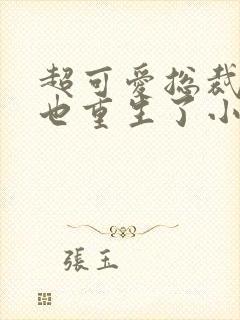 超可愛總裁
也重生了小
張玉